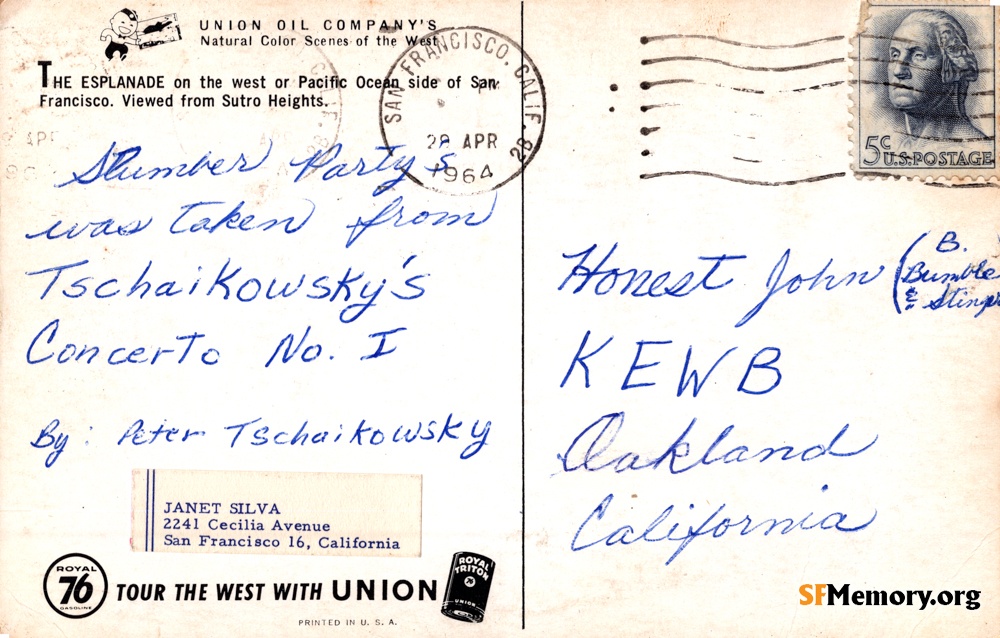 UNION OIL COMPANY'S
Natural Color Scenes of the West
THE ESPLANADE on the west or Pacific Ocean side of San
Francisco. Viewed from Sutro Heights.
SAN FRANCISCO, CALIF. 28
PM
28 APR
1964
5c
U.S. POSTAGE
Slumber Party's
was taken from
Tschaikowsky's
Concerto No. I
By: Peter Tschaikowsky
JANET SILVA
2241 Cecilia Avenue
San Francisco 16, California
ROYAL
76
GASOLINE
TOUR THE WEST WITH UNION
ROYAL
TRITON
76
UNION
PRINTED IN U. S. A.
Honest John (B.
Bumble
& Stingers
KEWB
Oakland
California
SFMemory.org